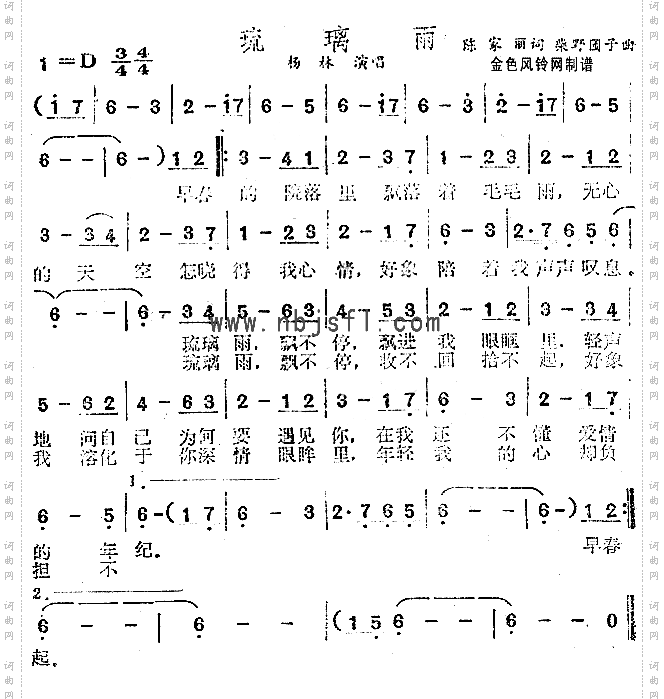 琉璃雨
1=D 3/4 4/4
陈家丽词 柴野囯子曲
杨林 演唱
金色风铃网制谱
(i7 | 6-3 | 2-i7 | 6-5 | 6-3 | 2-i7 | 6-5 |
6-- | 6-) 12 |: 3-41 | 2-37 | 1-23 | 2-12 |
早春的院落里飘落着毛毛雨,无心
3-34 | 2-37 | 1-23 | 2-17 | 6-3 | 2·7656 |
的天空怎晓得我心情,好象陪着我声声叹息。
6-- | 6-34 | 5-63 | 4-53 | 2-12 | 3-34 |
琉璃雨,飘不停,飘进我眼睚里,轻声
琉璃雨,飘不停,收不回拾不起,好象
www.nbjsfl.com
5-62 | 4-63 | 2-12 | 3-17 | 6-3 | 2-17 |
地问自己为何要遇见你,在我还不懂爱情
我溶化于你深情眼眸里,年轻我的心却负
1.
6-5 | 6-(17 | 6-3 | 2·765 | 6-- | 6-) 12 :|
的年纪。早春
担不
2.
6-- | 6-- | (156-- | 6-0 ‖
起。
词曲网